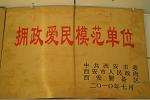 拥政爱民模范单位
中共西安市委
西安市人民政府
西安警备区
二〇一〇年七月